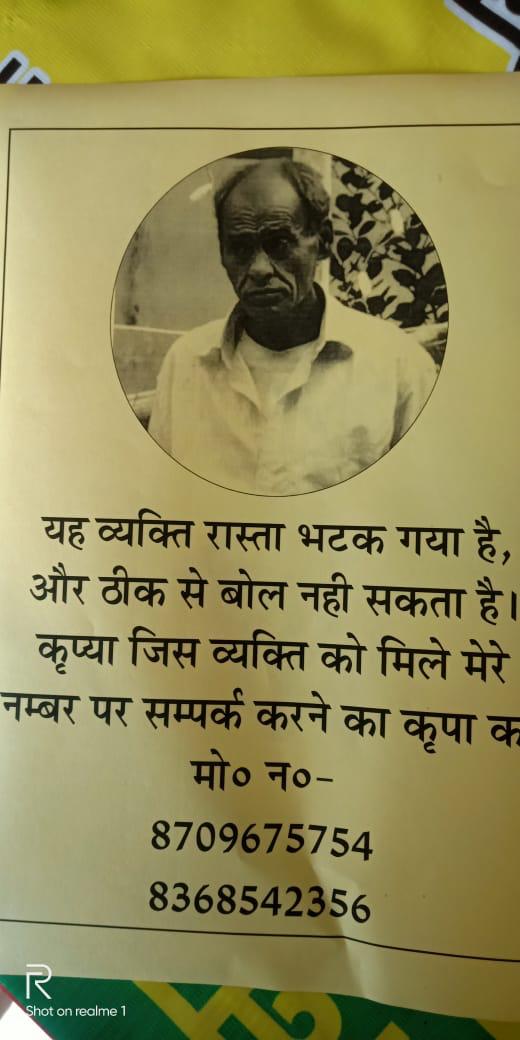 यह व्यक्ति रास्ता भटक गया है,
और ठीक से बोल नही सकता है।
कृप्या जिस व्यक्ति को मिले मेरे
नम्बर पर सम्पर्क करने का कृपा क
मो० न०-
8709675754
8368542356
R
Shot on realme 1